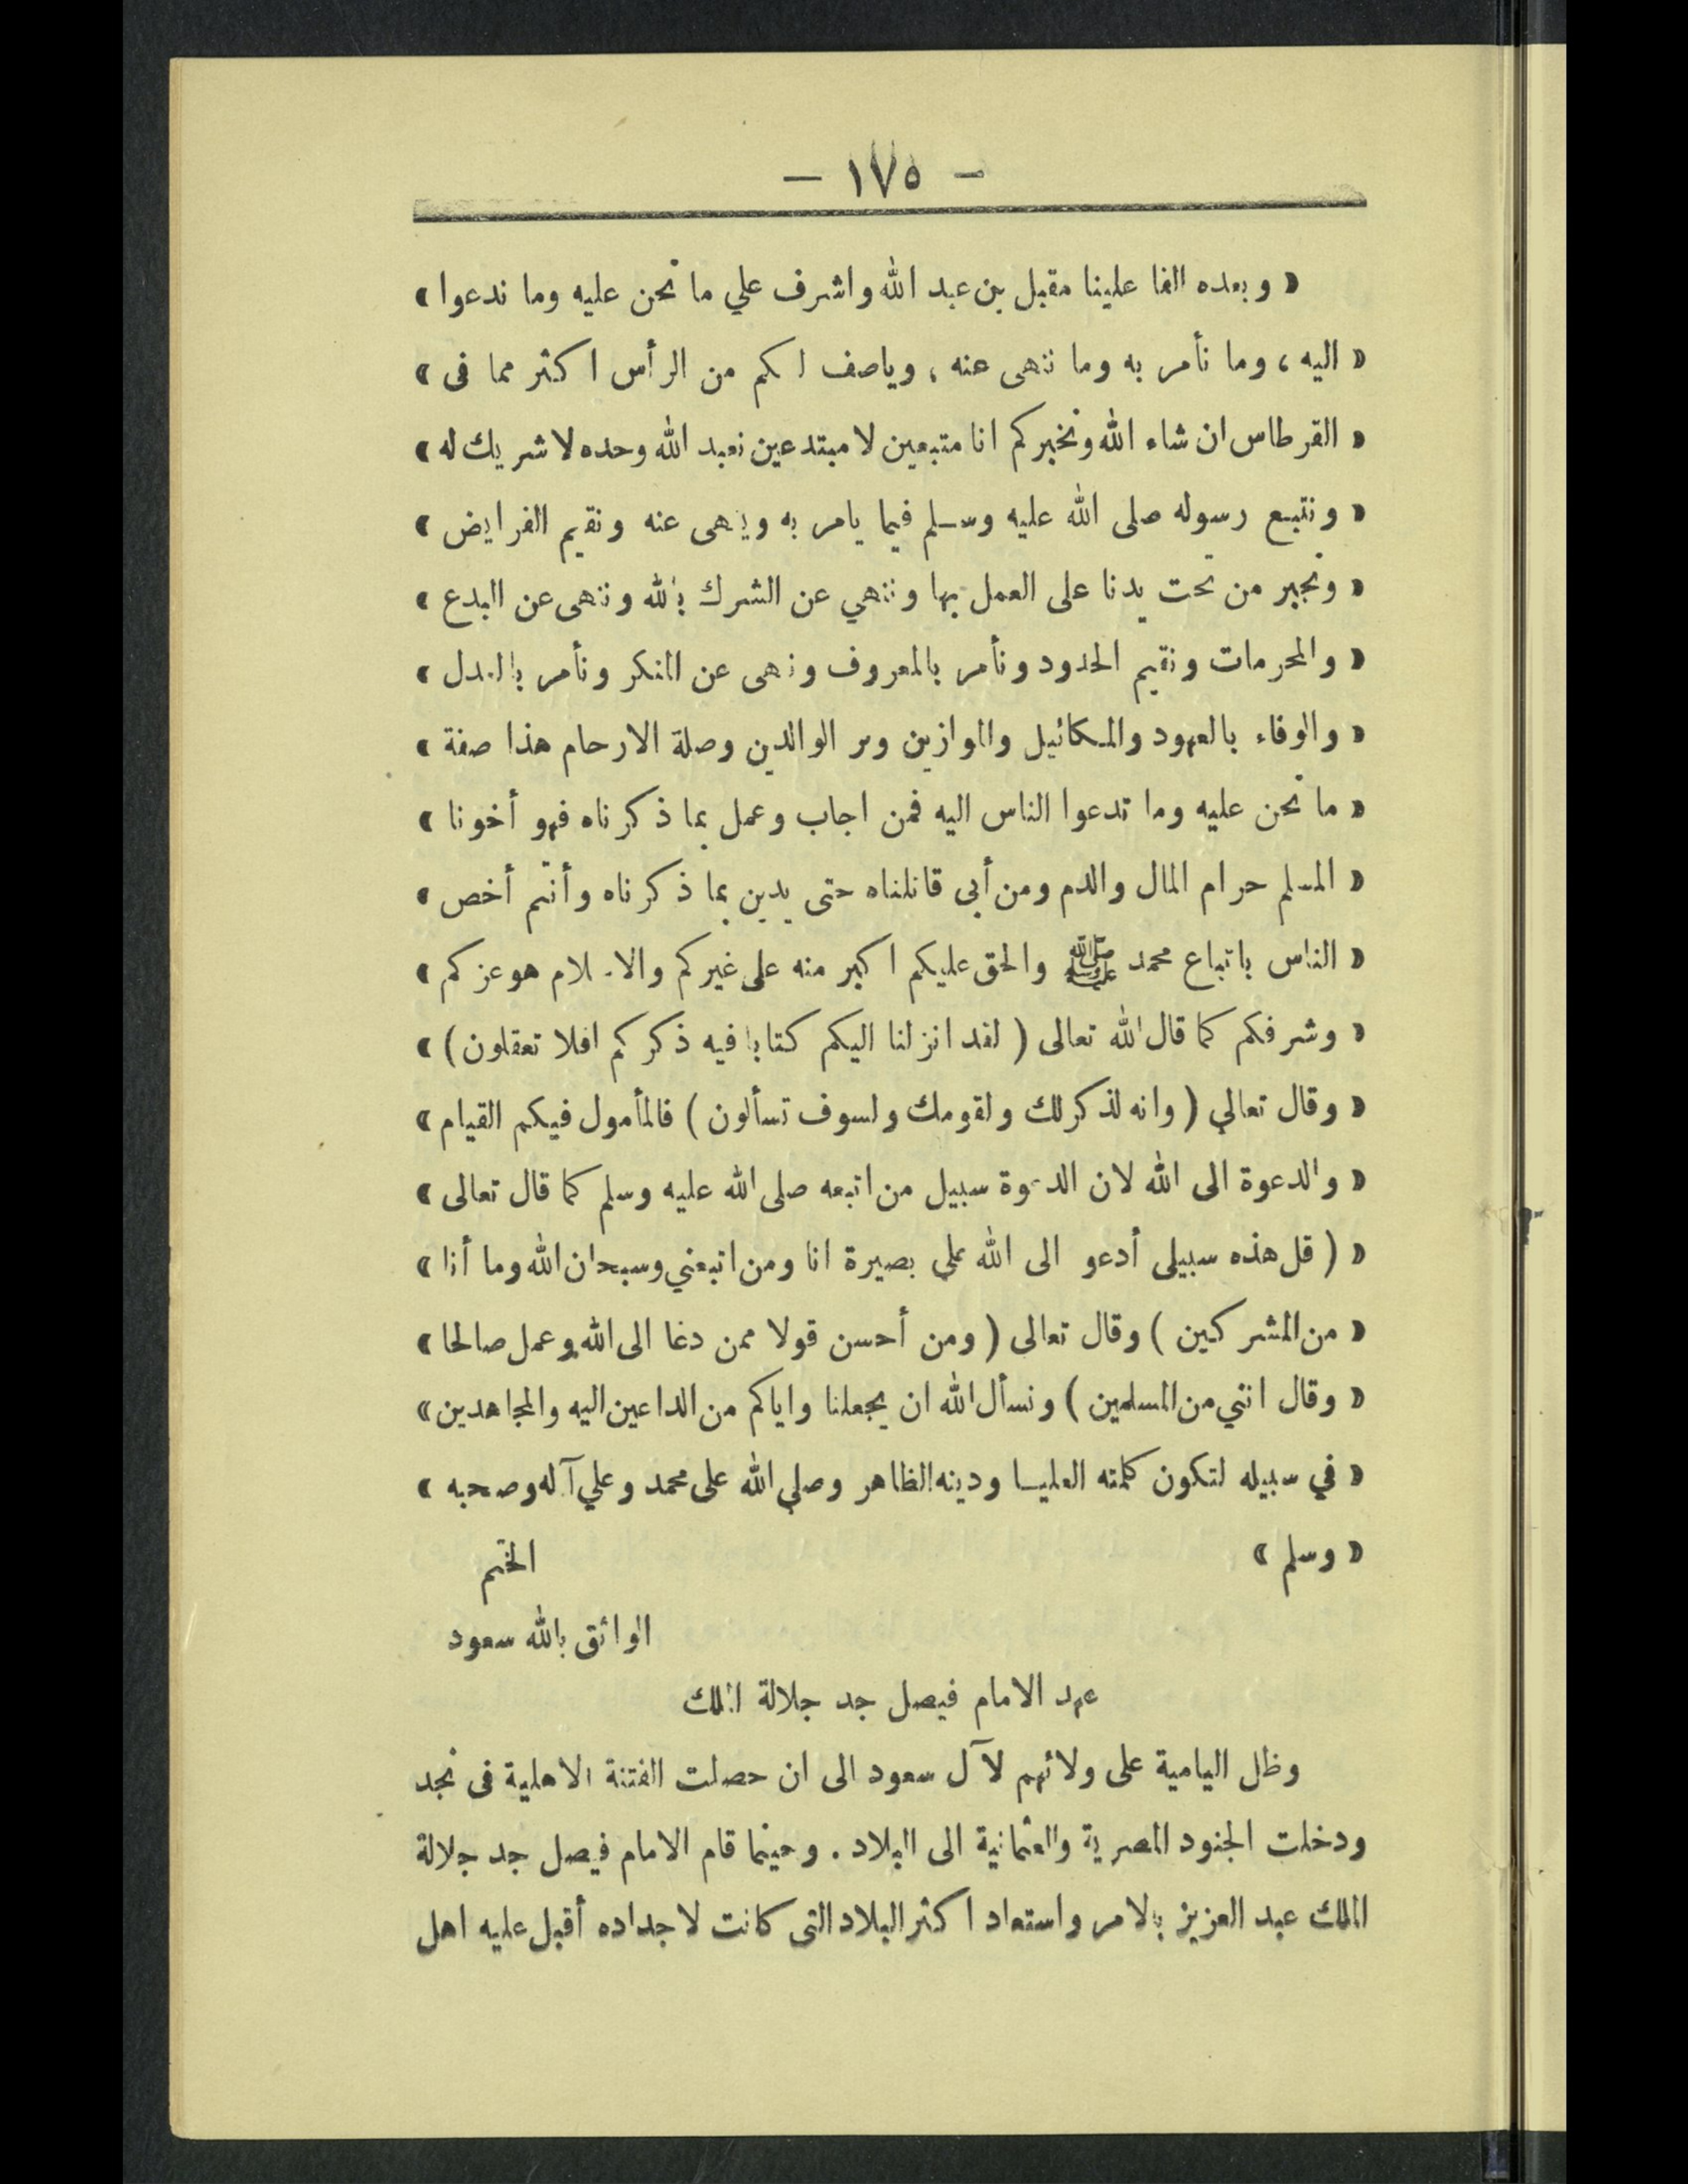 — ١٧٥ —
« وبعده الفا علينا مقبل بن عبد الله واشرف علي ما نحن عليه وما ندعوا »
« اليه ، وما نأمر به وما ننهى عنه ، وياصف لكم من الرأس اكثر مما فى »
« القرطاس ان شاء الله ونخبركم انا متبعين لا مبتدعين نعبد الله وحده لا شريك له »
« ونتبع رسوله صلى الله عليه وسلم فيما يامر به وينهى عنه ونقيم الفرايض »
« ونجبر من تحت يدنا على العمل بها وننهي عن الشرك بالله وننهى عن البدع »
« والمحرمات ونقيم الحدود ونأمر بالمعروف وننهى عن المنكر ونأمر بالعدل »
« والوفاء بالعهود والمكائيل والموازين وبر الوالدين وصلة الارحام هذا صفة »
« ما نحن عليه وما تدعوا الناس اليه فمن اجاب وعمل بما ذكرناه فهو أخونا »
« المسلم حرام المال والدم ومن أبى قاتلناه حتى يدين بما ذكرناه وأنتم أخص »
« الناس باتباع محمد ﷺ والحق عليكم اكبر منه على غيركم والاسلام هو عزكم »
« وشرفكم كما قال الله تعالى ( لقد انزلنا اليكم كتابا فيه ذكركم افلا تعقلون ) »
« وقال تعالي ( وانه لذكر لك ولقومك ولسوف تسألون ) فالمأمول فيكم القيام »
« والدعوة الى الله لان الدعوة سبيل من اتبعه صلى الله عليه وسلم كما قال تعالى »
« ( قل هذه سبيلى أدعو الى الله علي بصيرة انا ومن اتبعني وسبحان الله وما أنا »
« من المشركين ) وقال تعالى ( ومن أحسن قولا ممن دغا الى الله وعمل صالحا »
« وقال انني من المسلمين ) ونسأل الله ان يجعلنا واياكم من الداعين اليه والمجاهدين »
« في سبيله لتكون كلمته العليا ودينه الظاهر وصلي الله على محمد وعلي آله وصحبه »
« وسلم » الختم
الواثق بالله سعود
عهد الامام فيصل جد جلالة الملك
وظل اليامية على ولائهم لآل سعود الى ان حصلت الفتنة الاهلية فى نجد
ودخلت الجنود المصرية والعثمانية الى البلاد . وحينما قام الامام فيصل جد جلالة
الملك عبد العزيز بالامر واستعاد اكثر البلاد التى كانت لاجداده أقبل عليه اهل